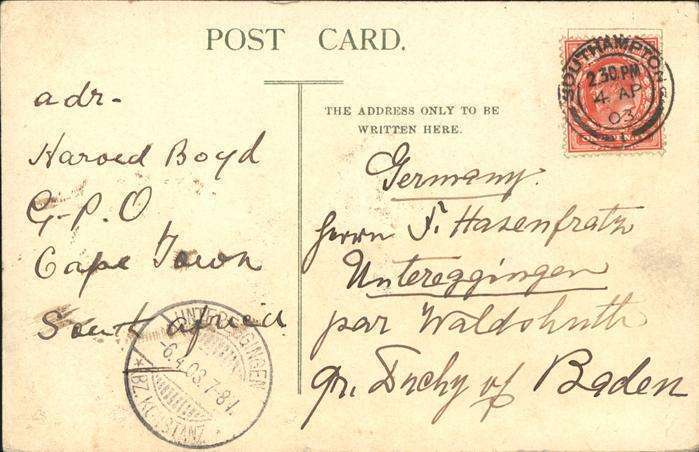 POST CARD.
SOUTHAMPTON
2.30 PM
4 AP
03
adr-
Harold Boyd
G-P.O
Cape Town
South Africa
THE ADDRESS ONLY TO BE
WRITTEN HERE.
Germany.
Herrn F. Hasenfratz
Untereggingen
par Waldshuth
Gr. Duchy of Baden
UNTEREGGINGEN
-6.4.03.7-8V.
*(BZ. KONSTANZ